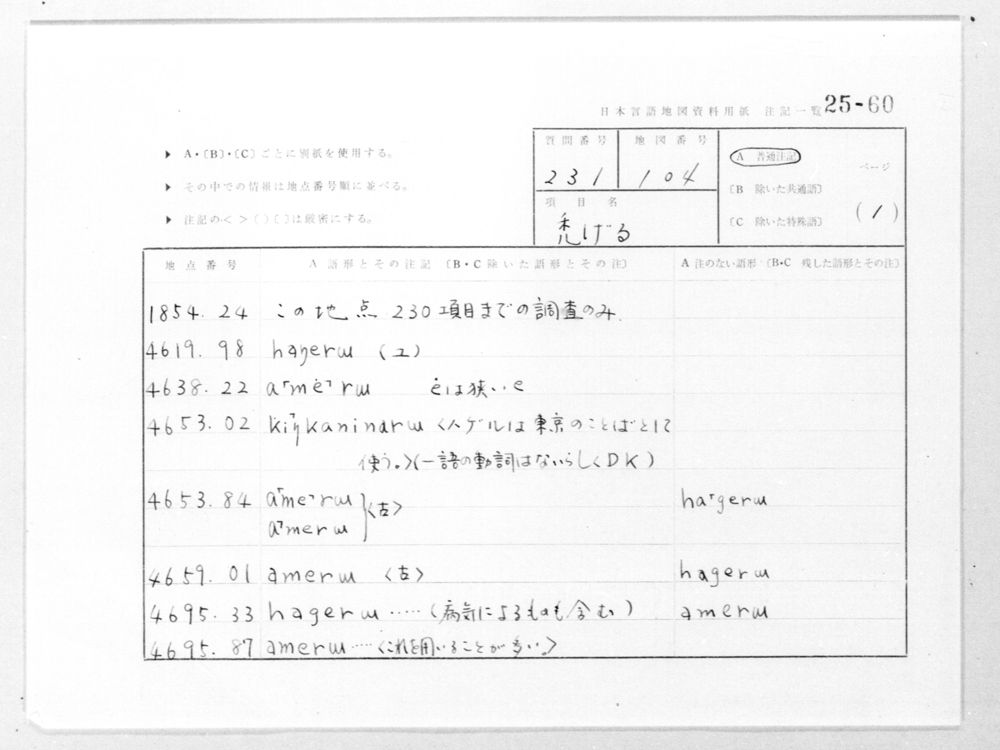 日本言語地図資料用紙 注記一覧 25-60
▶ A・〔B〕・〔C〕ごとに別紙を使用する。
▶ その中での情報は地点番号順に並べる。
▶ 注記の< >( )〔 〕は厳密にする。
質問番号 地図番号
231 104
項目名
禿げる
A 普通注記
〔B 除いた共通語〕
〔C 除いた特殊語〕
ページ
(1)
地点番号 A 語形とその注記〔B・C 除いた語形とその注〕 A 注のない語形・〔B・C 残した語形とその注〕
1854. 24 この地点 230項目までの調査のみ.
4619. 98 haŋerɯ (ユ)
4638. 22 a⌜mė⌝rɯ ėは狭いe
4653. 02 ki⌝ŋkaninarɯ <ハゲルは東京のことばとして
使う。>(一語の動詞はないらしくDK)
4653. 84 a⌜me⌝rɯ ha⌜gerɯ
a⌝merɯ }<古>
4659. 01 amerɯ <古> hagerɯ
4695. 33 hagerɯ ‥‥‥(病気によるものも含む) amerɯ
4695. 87 amerɯ ‥‥<これを用いることが多い。>